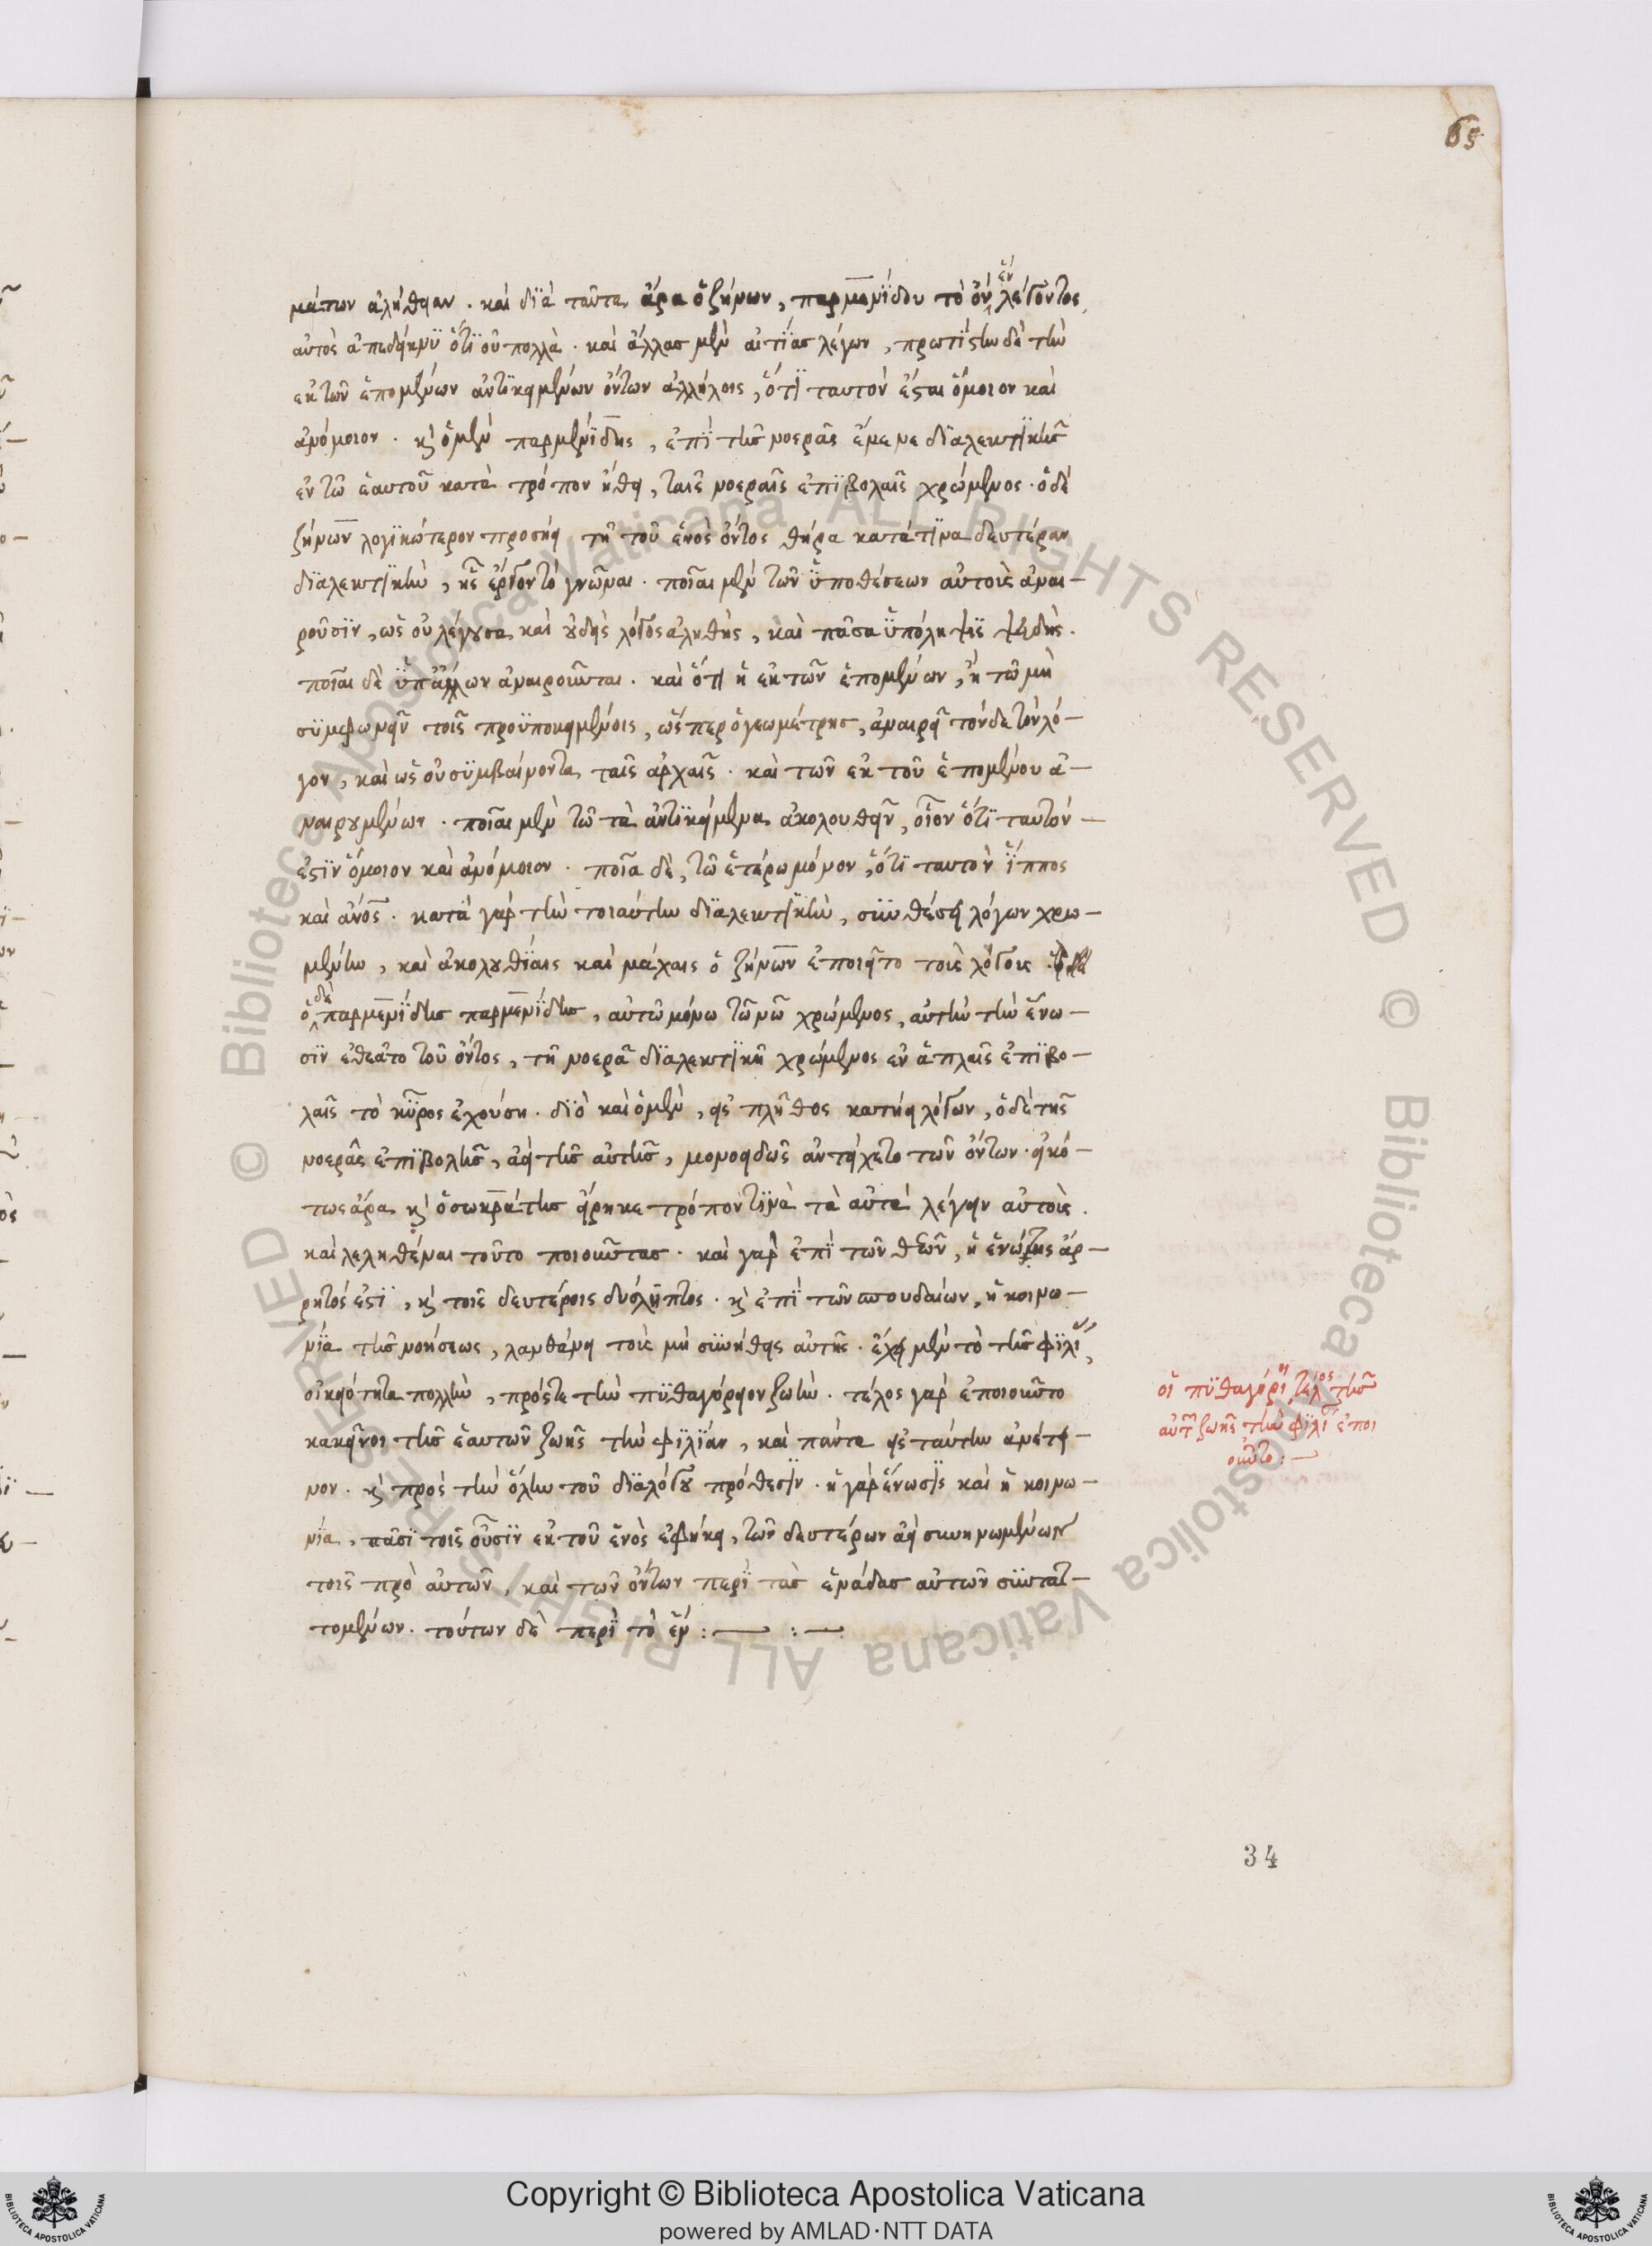 65
μάτων ἀλήθειαν. καὶ διὰ ταῦτα ἄρα ὁ ζήνων, παρμενίδου τὸ ὂν ἓν λέγοντος,
αὐτὸς ἀπεδείκνυ ὅτι οὐ πολλὰ. καὶ ἄλλας μὲν αἰτίας λέγων, πρωτίστην δὲ τὴν
ἐκ τῶν ἑπομένων ἀντικειμένων ὄντων ἀλλήλοις, ὅτι ταυτὸν ἔσται ὅμοιον καὶ
ἀνόμοιον. κ̀ ὁ μὲν παρμενίδης, ἐπὶ τῆς νοερᾶς ἔμενε διαλεκτικῆς
ἐν τῷ ἑαυτοῦ κατὰ τρόπον ἤθει, ταῖς νοεραῖς ἐπιβολαῖς χρώμενος. ὁ δὲ
ζήνων λογικώτερον προσῄει τῇ τοῦ ἑνὸς ὄντος θήρα κατά τινα δευτέραν
διαλεκτικὴν, ἧς ἔργον τὸ γνῶναι. ποῖαι μὲν τῶν ὑποθέσεων αὐτοὶς ἀναι—
ροῦσιν, ὡς οὐ λέγουσα καὶ οὐδεὶς λόγος ἀληθὴς, καὶ πᾶσα ὑπόληψις ψευδὴς.
ποῖαι δὲ ὑπ' ἄλλων ἀναιροῦνται. καὶ ὅτι ἢ ἐκ τῶν ἑπομένων, ἢ τῷ μὴ
συμφωνεῖν τοῖς προϋποκειμένοις, ὥσπερ ὁ γεωμέτρης, ἀναιρεῖ τόνδε τὸν λό—
γον, καὶ ὡς οὐ συμβαίνοντα ταῖς ἀρχαῖς. καὶ τῶν ἐκ τοῦ ἑπομένου ἀ—
ναιρουμένων. ποῖαι μὲν τῷ τὰ ἀντικείμενα ἀκολουθεῖν, οἷον ὅτι ταυτόν—
ἐστιν ὅμοιον καὶ ἀνόμοιον. ποῖα δὲ, τῷ ἑτέρω μόνον, ὅτι ταυτὸν ἵππος
καὶ ἄνος. κατὰ γὰρ τὴν τοιαύτην διαλεκτικὴν, συνθέσει λόγων χρω—
μένην, καὶ ἀκολουθίαις καὶ μάχαις ὁ ζήνων ἐποιεῖτο τοὺς λόγους.
ὁ δὲ παρμενίδης παρμενίδης, αὐτῷ μόνω τῷ νῷ χρώμενος, αὐτὴν τὴν ἕνω—
σιν ἐθεᾶτο τοῦ ὄντος, τῇ νοερᾷ διαλεκτικῇ χρώμενος ἐν ἁπλαῖς ἐπιβο—
λαῖς τὸ κῦρος ἐχούση. διὸ καὶ ὁ μὲν, εἰς πλῆθος κατήει λόγων, ὁ δὲ τῆς
νοερᾶς ἐπιβολῆς, ἀεὶ τῆς αὐτῆς, μονοειδῶς ἀντείχετο τῶν ὄντων. εἰκό—
τως ἄρα κ̀ ὁ σωκράτης εἴρηκε τρόπον τινὰ τὰ αὐτὰ λέγειν αὐτοὺς.
καὶ λεληθέναι τοῦτο ποιοῦντας. καὶ γὰρ ἐπὶ τῶν θεῶν, ἡ ἑνότης ἄρ—
ρητός ἐστι, κ̀ τοῖς δευτέροις δύσληπτος. κ̀ ἐπὶ τῶν σπουδαίων, ἡ κοινω—
νία τῆς νοήσεως, λανθάνει τοὺς μὴ συνήθεις αὐτῆς. ἔχει μὲν τὸ τῆς φιλί
οἰκειότητα πολλὴν, πρός τε τὴν πυθαγόρειον ζωὴν. τέλος γὰρ ἐποιοῦντο
κακεῖνοι τῆς ἑαυτῶν ζωῆς τὴν φιλίαν, καὶ πάντα εἰς ταύτην ἀνέτει—
νον. κ̀ πρὸς τὴν ὅλην τοῦ διαλόγου πρόθεσιν. ἡ γὰρ ἕνωσις καὶ ἡ κοινω—
νία, πᾶσι τοῖς οὖσιν ἐκ τοῦ ἑνὸς ἐφήκει, τῶν δευτέρων ἀεὶ συνηνωμένων
τοῖς πρὸ αὐτῶν, καὶ τῶν ὄντων περὶ τὰς ἑνάδας αὐτῶν συντατ—
τομένων. τούτων δὲ περὶ τὸ ἕν :— :—
οἱ πυθαγόρει τέλος τῆς
αὐτ ζωῆς τὴν φιλί ἐποι
οῦντο :—
34
Copyright © Biblioteca Apostolica Vaticana
powered by AMLAD·NTT DATA